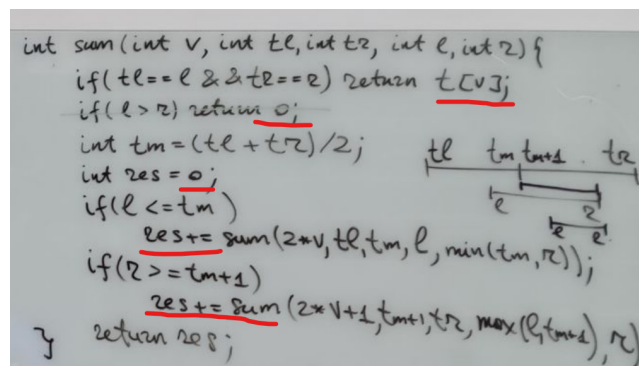 int sum(int v, int tl, int tr, int l, int r){
if(tl==l && tr==r) return t[v];
if(l>r) return 0;
int tm=(tl+tr)/2;
tl tm tm+1 tr
int res=0;
l r
l r
if(l<=tm)
res+=sum(2*v,tl,tm,l,min(tm,r));
if(r>=tm+1)
res+=sum(2*v+1,tm+1,tr,max(l,tm+1),r)
return res;
}